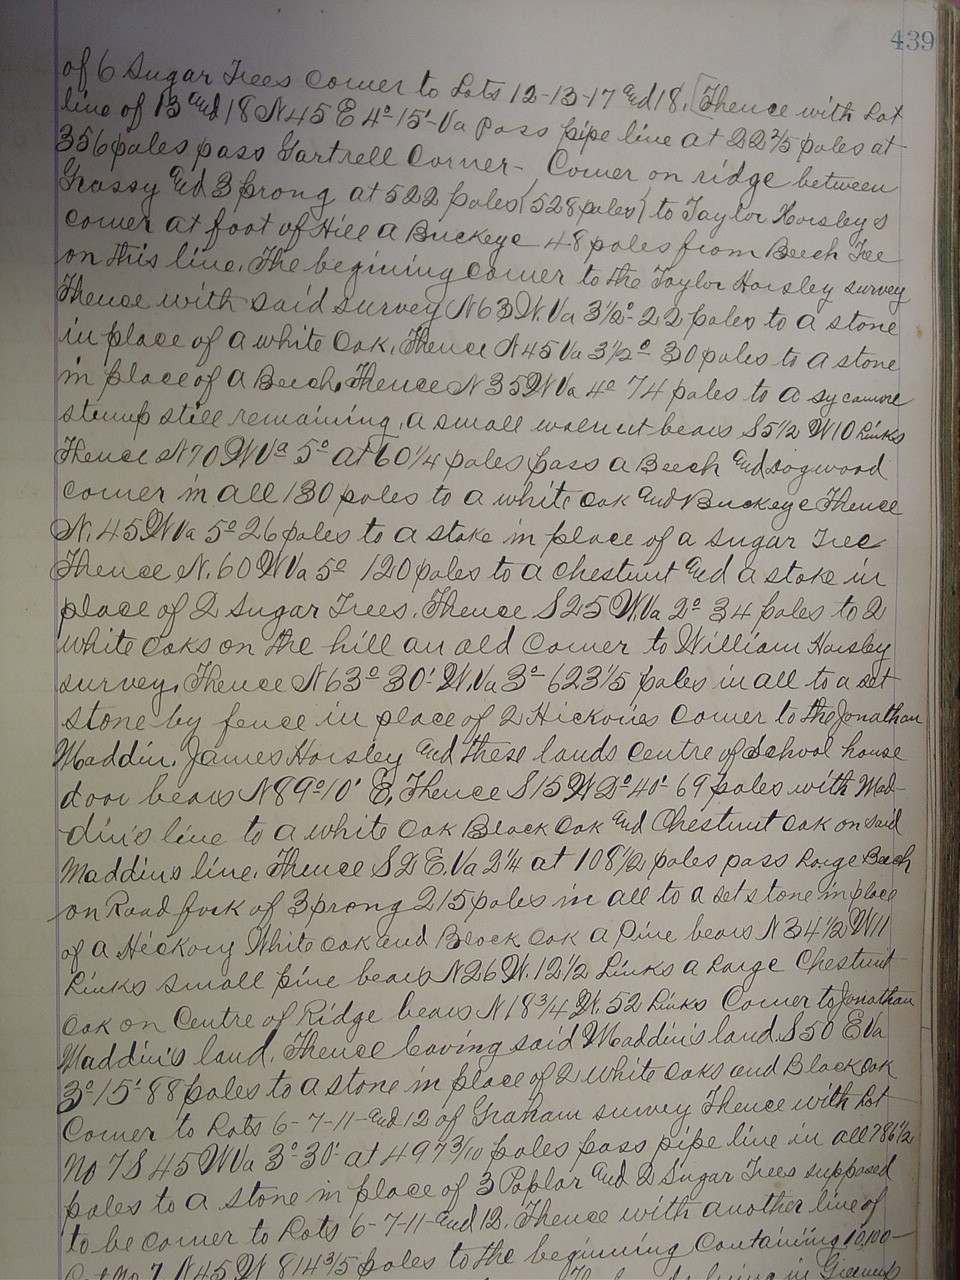 439
of 6 Sugar Trees corner to Lots 12-13-17 and 18. [Thence with Lot
line of 13 and 18 N 45 E 4°-15'-Va pass pipe line at 22 2/5 poles at
356 poles pass Gartrell Corner-, Corner on ridge between
Grassy and 3 prong at 522 poles (528 poles) to Taylor Horsley's
corner at foot of Hill a Buckeye 48 poles from Beech Tree
on this line. The begining corner to the Taylor Horsley survey
Thence with said survey N 63 W. Va 3 1/2° 22 poles to a stone
in place of a white Oak. Thence N 45 Va 3 1/2° 30 poles to a stone
in place of a Beech. Thence N 35 W Va 4° 74 poles to a sycamore
stump still remaining, a small walnut bears S 5 1/2 W 10 Links
Thence N 70 W Va 5° at 60 1/4 poles pass a Beech and dogwood
corner in all 130 poles to a white oak and Buckeye Thence
N. 45 W Va 5° 26 poles to a stake in place of a Sugar Tree
Thence N. 60 W Va 5° 120 poles to a chestnut and a stake in
place of 2 Sugar Trees. Thence S 25 W Va 2° 34 poles to 2
white oaks on the hill an old corner to William Horsley
survey. Thence N 63° 30' W. Va 3° 623 1/5 poles in all to a set
stone by fence in place of 2 Hickories corner to the Jonathan
Maddin. James Horsley and these lands centre of School house
door bears N 89° 10' E. Thence S 15 W 2° 40' 69 poles with Mad-
din's line to a white Oak Black Oak and Chestnut oak on said
Maddins line. Thence S 2 E. Va 2 1/4 at 108 1/2 poles pass Large Beech
on Road fork of 3 prong 215 poles in all to a set stone in place
of a Hickory White oak and Black Oak a Pine bears N 34 1/2 W 11
Links small pine bears N 26 W. 12 1/2 Links a Large Chestnut
oak on Centre of Ridge bears N 18 3/4 W. 52 Links Corner to Jonathan
Maddin's land. Thence leaving said Maddin's land S 50 E Va
3° 15' 88 poles to a stone in place of 2 white oaks and Black oak
Corner to Lots 6-7-11-and 12 of Graham survey Thence with Lot
No 7 S 45 W Va 3° 30' at 497 3/10 poles pass pipe line in all 786 1/2
poles to a stone in place of 3 Poplar and 2 Sugar Trees supposed
to be corner to Lots 6-7-11-and 12. Thence with another line of
Lot No 7 N 45 W 814 3/5 poles to the beginning Containing 10,100-
lying in Greenup